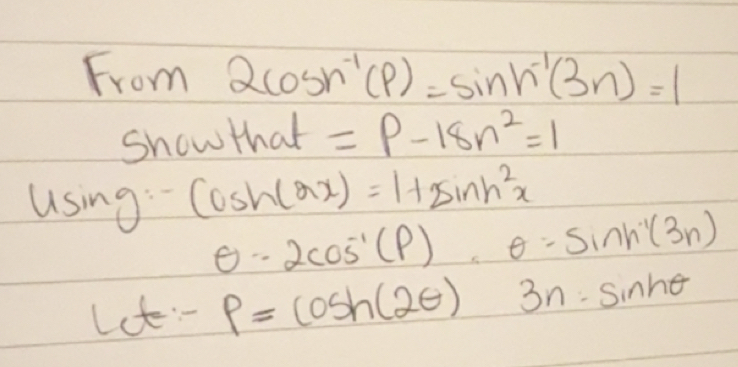 From 2cosh⁻¹(P) = sinh⁻¹(3n) = 1
Show that = P - 18n² = 1
Using:- Cosh(2x) = 1+2sinh²x
θ = 2cos⁻¹(P) . θ = Sinh⁻¹(3n)
Let:- P = Cosh(2θ) 3n = Sinhθ